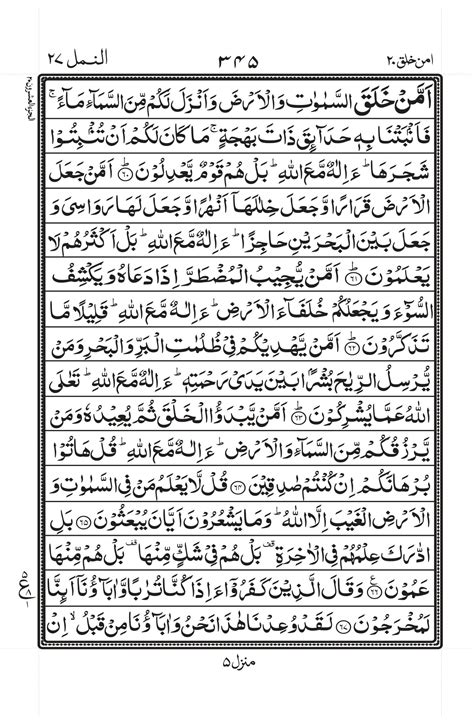 امن خلق ۲۰ ۳۴۵ النمل ۲۷
اَمَّنۡ خَلَقَ السَّمٰوٰتِ وَالۡاَرۡضَ وَاَنۡزَلَ لَـكُمۡ مِّنَ السَّمَآءِ مَآءً ۚ
فَاَنۡۢبَتۡنَا بِهٖ حَدَآئِقَ ذَاتَ بَهۡجَةٍ ۚ مَا كَانَ لَـكُمۡ اَنۡ تُنۡۢبِتُوۡا
شَجَرَهَا ؕ ءَاِلٰهٌ مَّعَ اللّٰهِ ؕ بَلۡ هُمۡ قَوۡمٌ يَّعۡدِلُوۡنَ ۶۰ اَمَّنۡ جَعَلَ
الۡاَرۡضَ قَرَارًا وَّجَعَلَ خِلٰلَهَاۤ اَنۡهٰرًا وَّجَعَلَ لَهَا رَوَاسِىَ وَ
جَعَلَ بَيۡنَ الۡبَحۡرَيۡنِ حَاجِزًا ؕ ءَاِلٰهٌ مَّعَ اللّٰهِ ؕ بَلۡ اَكۡثَرُهُمۡ لَا
يَعۡلَمُوۡنَ ۶۱ اَمَّنۡ يُّجِيۡبُ الۡمُضۡطَرَّ اِذَا دَعَاهُ وَيَكۡشِفُ
السُّوۡٓءَ وَيَجۡعَلُكُمۡ خُلَفَآءَ الۡاَرۡضِ ؕ ءَاِلٰهٌ مَّعَ اللّٰهِ ؕ قَلِيۡلًا مَّا
تَذَكَّرُوۡنَ ۶۲ اَمَّنۡ يَّهۡدِيۡكُمۡ فِىۡ ظُلُمٰتِ الۡبَرِّ وَالۡبَحۡرِ وَمَنۡ
يُّرۡسِلُ الرِّيٰحَ بُشۡرًۢا بَيۡنَ يَدَىۡ رَحۡمَتِهٖ ؕ ءَاِلٰهٌ مَّعَ اللّٰهِ ؕ تَعٰلَى
اللّٰهُ عَمَّا يُشۡرِكُوۡنَ ۶۳ اَمَّنۡ يَّبۡدَؤُا الۡخَـلۡقَ ثُمَّ يُعِيۡدُهٗ وَمَنۡ
يَّرۡزُقُكُمۡ مِّنَ السَّمَآءِ وَالۡاَرۡضِ ؕ ءَاِلٰهٌ مَّعَ اللّٰهِ ؕ قُلۡ هَاتُوۡا
بُرۡهَانَكُمۡ اِنۡ كُنۡتُمۡ صٰدِقِيۡنَ ۶۴ قُلْ لَّا يَعۡلَمُ مَنۡ فِى السَّمٰوٰتِ وَ
الۡاَرۡضِ الۡغَيۡبَ اِلَّا اللّٰهُ ؕ وَمَا يَشۡعُرُوۡنَ اَيَّانَ يُبۡعَثُوۡنَ ۶۵ بَلِ
ادّٰرَكَ عِلۡمُهُمۡ فِى الۡاٰخِرَةِ بَلۡ هُمۡ فِىۡ شَكٍّ مِّنۡهَا بَلۡ هُمۡ مِّنۡهَا
عَمُوۡنَ ۶۶ وَقَالَ الَّذِيۡنَ كَفَرُوۡۤا ءَاِذَا كُنَّا تُرٰبًا وَّاٰبَآؤُنَاۤ اَٮِٕنَّا
لَمُخۡرَجُوۡنَ ۶۷ لَـقَدۡ وُعِدۡنَا هٰذَا نَحۡنُ وَاٰبَآؤُنَا مِنۡ قَبۡلُ ۙ اِنۡ
منزل ۵